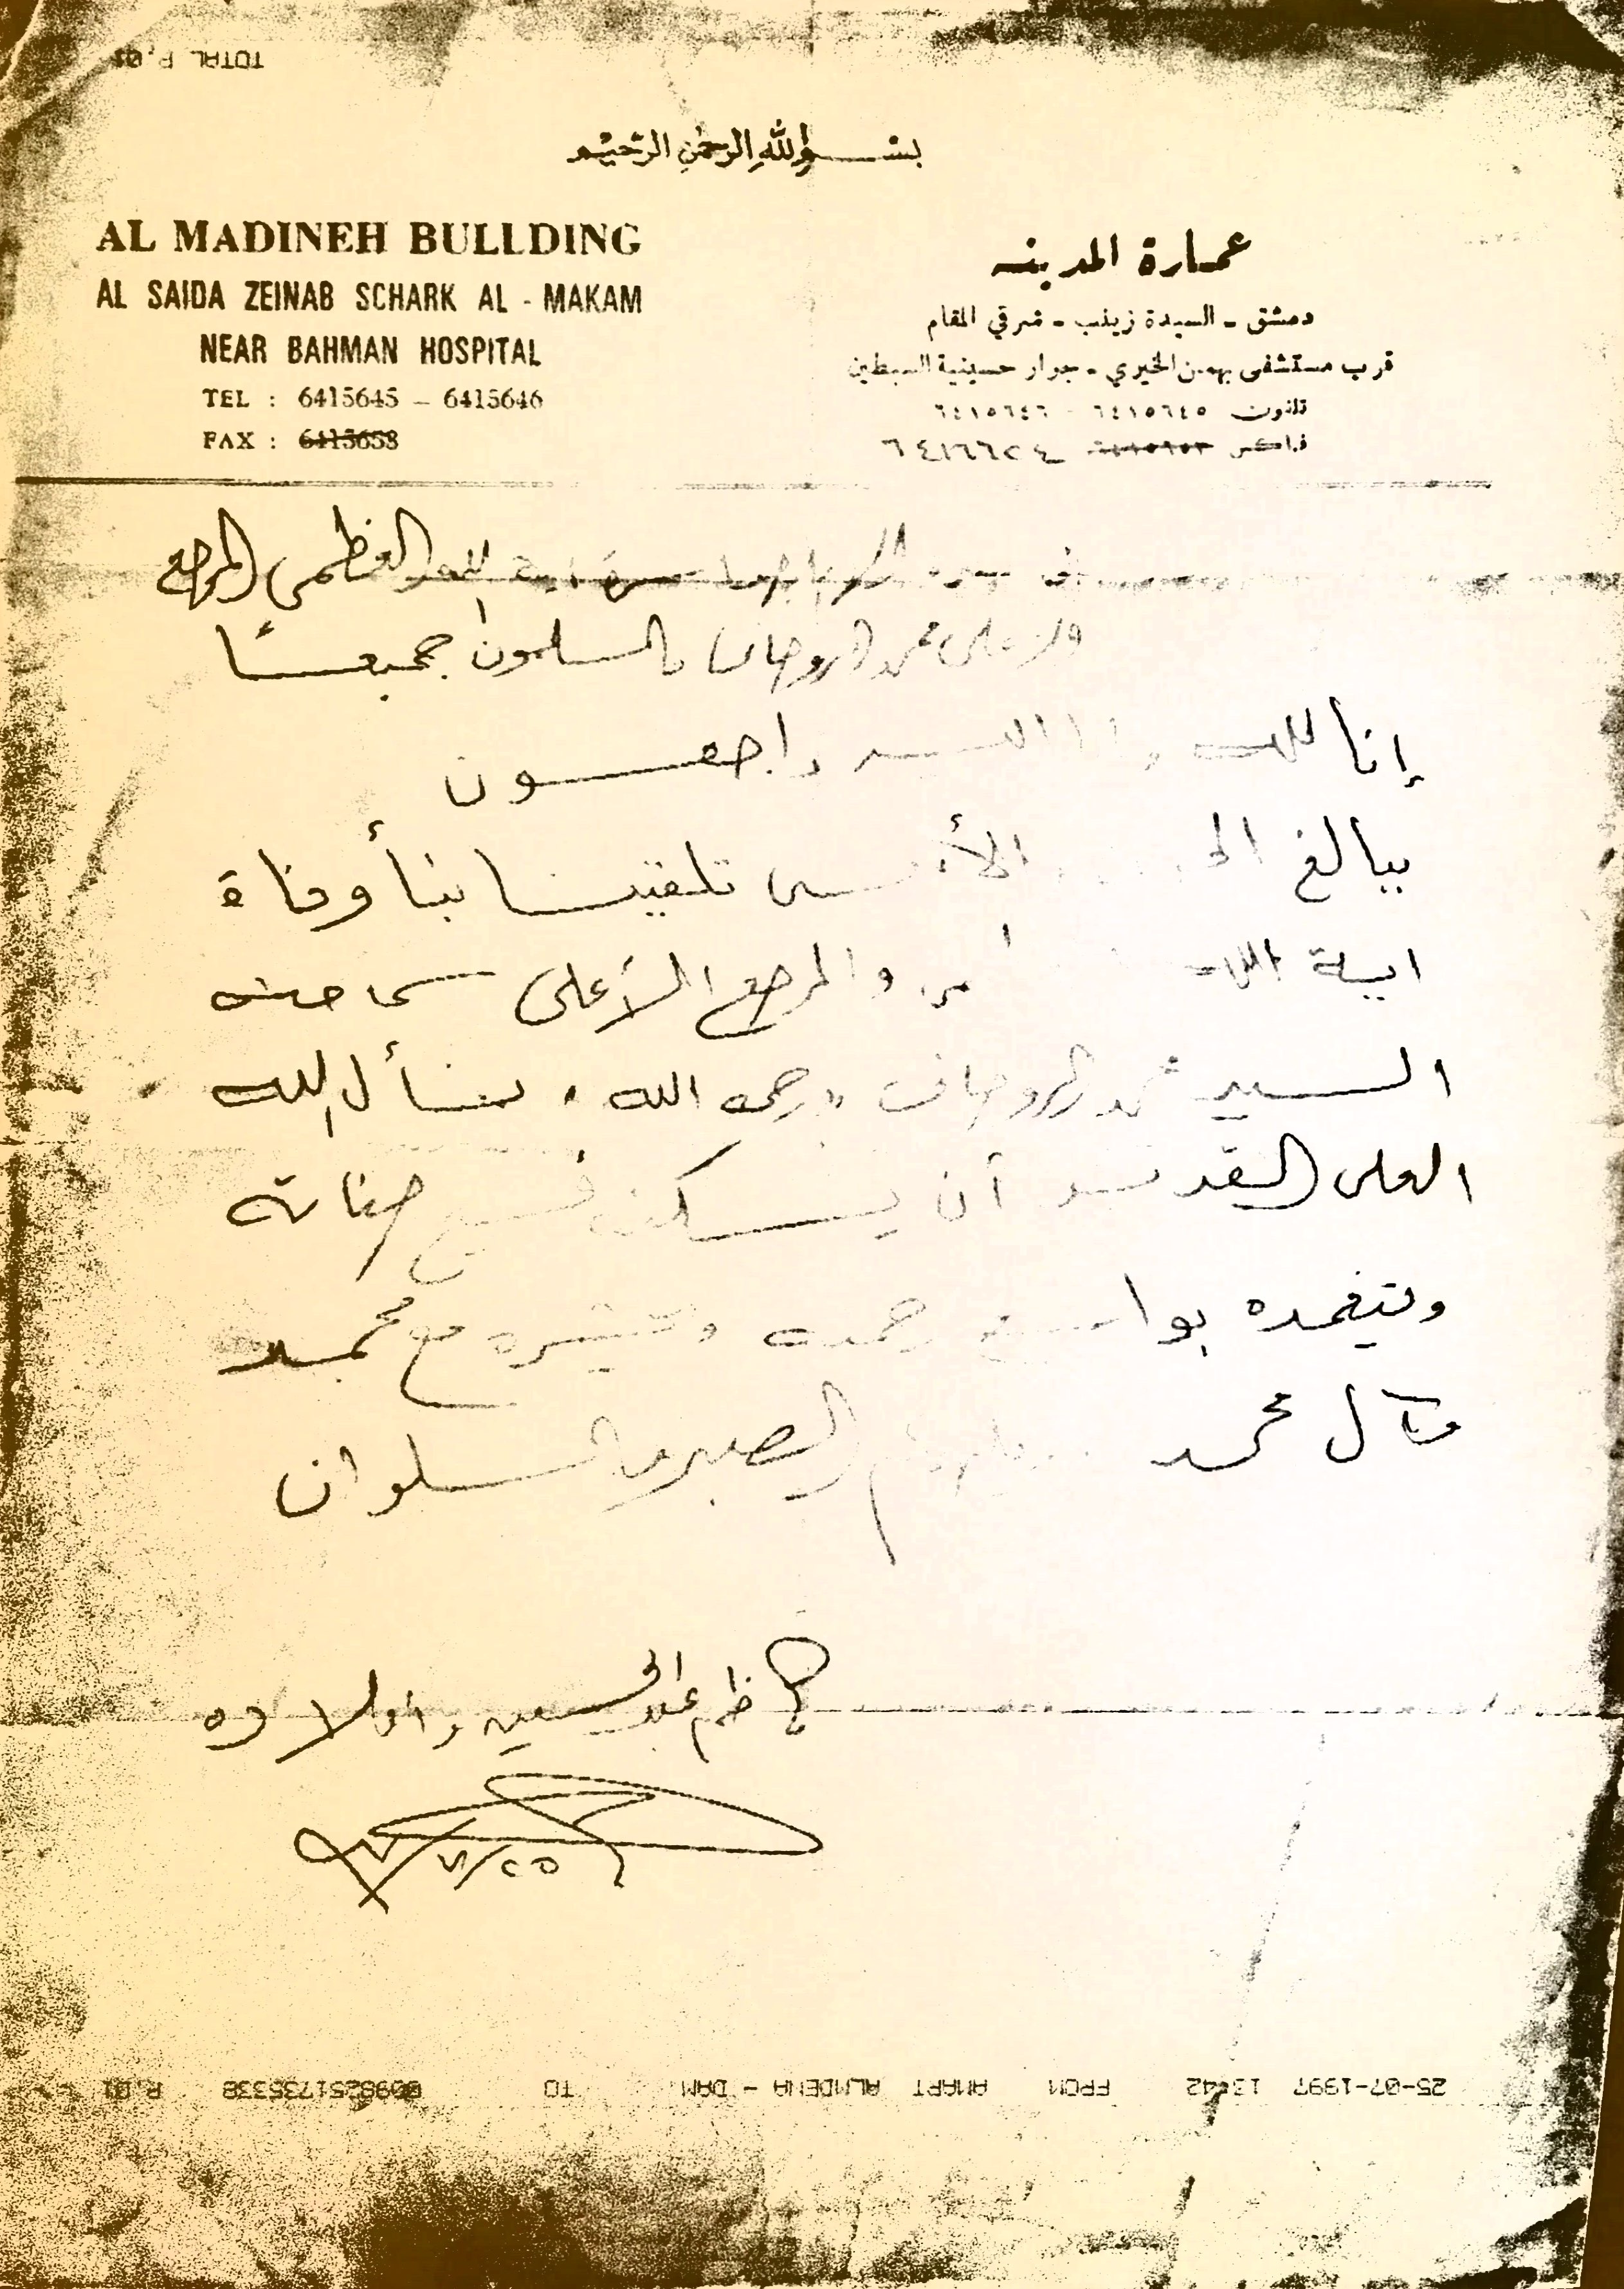 TOTAL P.01
بسم الله الرحمن الرحيم
AL MADINEH BULLDING
AL SAIDA ZEINAB SCHARK AL - MAKAM
NEAR BAHMAN HOSPITAL
TEL : 6415645 – 6415646
FAX : 6415653
عمارة المدينه
دمشق - السيدة زينب - شرقي المقام
قرب مستشفى بهمن الخيري - جوار حسينية السبطين
تلفون ٦٤١٥٦٤٥ - ٦٤١٥٦٤٦
فاكس ٦٤١٦٦٢٤
العظمى المراجع
محمد الروحاني والمسلمون جميعاً
إنا لله وانا اليه راجعون
ببالغ الأسى تلقينا نبأ وفاة
اية الله والمرجع الأعلى سماحته
السيد محمد الروحاني «رحمه الله» نسأل الله
العلي القدير أن يسكنه فسيح جناته
ويتغمده بواسع رحمته ويحشره مع محمد
وآل محمد الصبر والسلوان
كاظم عبد الحسين واولاده
٢٥/٧/٩٧
25-07-1997 13:42 FROM AMART ALMDENA - DAM TO 0098251735338 P.01